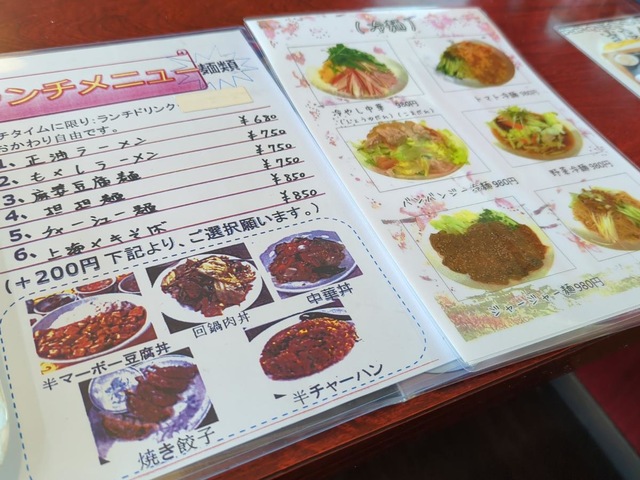 ランチメニュー 麺類
チタイムに限り:ランチドリンク
おかわり自由です。
1、正油ラーメン ¥680
2、もやしラーメン ¥750
3、麻婆豆腐麺 ¥750
4、担担麺 ¥750
5、ジャージャー麺 ¥850
6、上海ヤキソバ ¥850
(+200円 下記より、ご選択願います。)
半マーボー豆腐丼
回鍋肉丼
中華丼
焼き餃子
半チャーハン
(冷麺)
冷やし中華
(しょうゆだれ)(ごまだれ)
トマト冷麺
バンバンジー冷麺 980円
野菜冷麺 980円
ジャージャー麺 980円